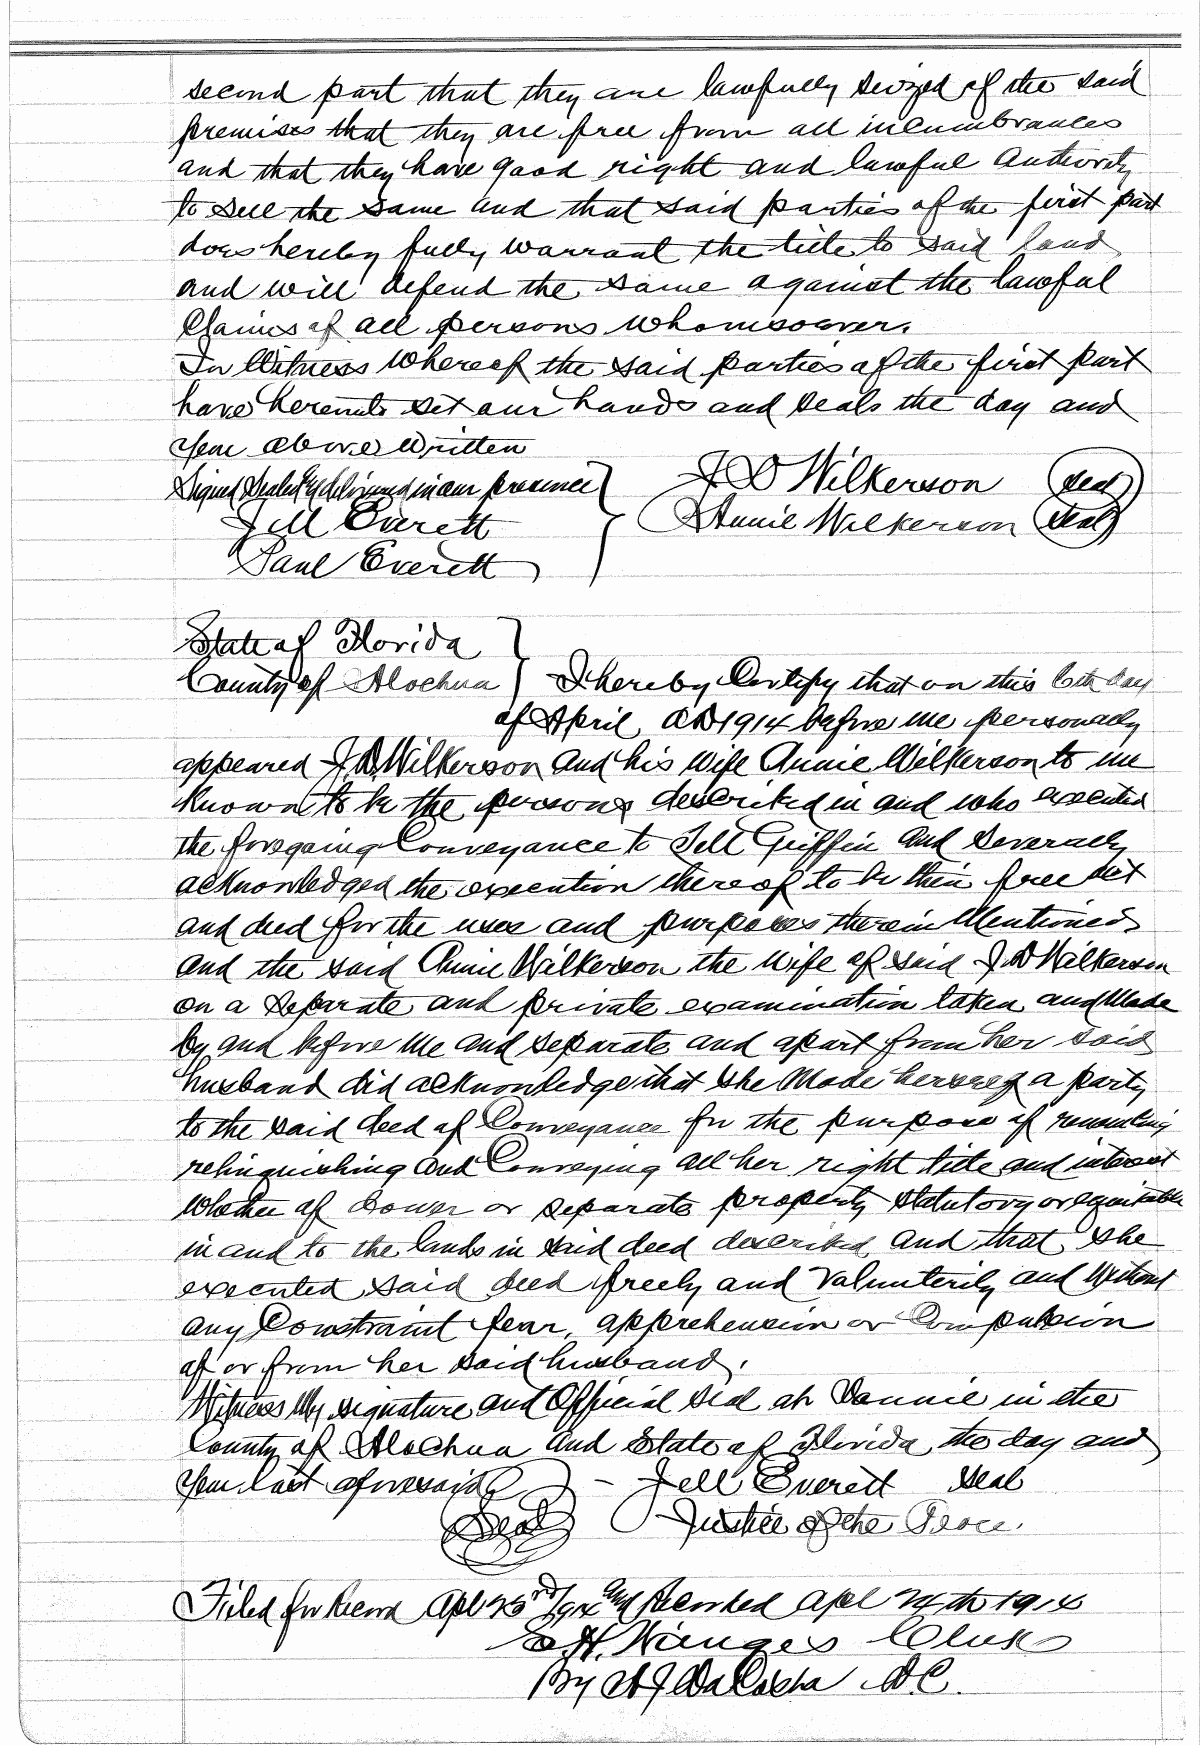 second part that they are lawfully seized of the said
premises that they are free from all incumbrances
and that they have good right and lawful authority
to sell the same and that said parties of the first part
does hereby fully warrant the title to said land
and will defend the same against the lawful
Claims of all persons whomsoever.
In Witness Whereof the said parties of the first part
have hereunto set our hands and seals the day and
year above written
Signed Sealed & delivered in our presence J D Wilkerson (Seal)
J M Everett Annie Wilkerson (Seal)
Paul Everett
State of Florida
County of Alachua I hereby Certify that on this 6th day
of April AD 1914 before me personally
appeared J D Wilkerson and his wife Annie Wilkerson to me
known to be the persons described in and who executed
the foregoing Conveyance to Griffin and severally
acknowledged the execution thereof to be their free act
and deed for the uses and purposes therein Mentioned
and the said Annie Wilkerson the wife of said J D Wilkerson
on a separate and private examination taken and Made
by and before Me and separate and apart from her said
husband did acknowledge that she Made herself a party
to the said deed of Conveyance for the purpose of renouncing
relinquishing and Conveying all her right title and interest
whether of dower or separate property statutory or equitable
in and to the lands in said deed described and that she
executed said deed freely and Volunterily and Without
any Constraint fear, apprehension or Compulsion
of or from her said husband.
Witness My signature and Official seal at in the
County of Alachua and State of Florida the day and
year last aforesaid Everett Seal
(Seal) Justice of the Peace.
Filed for Record Apl 23rd 1914 and Recorded Apl 24th 1914
S. H. Wienges Clerk
By DaCosta D.C.